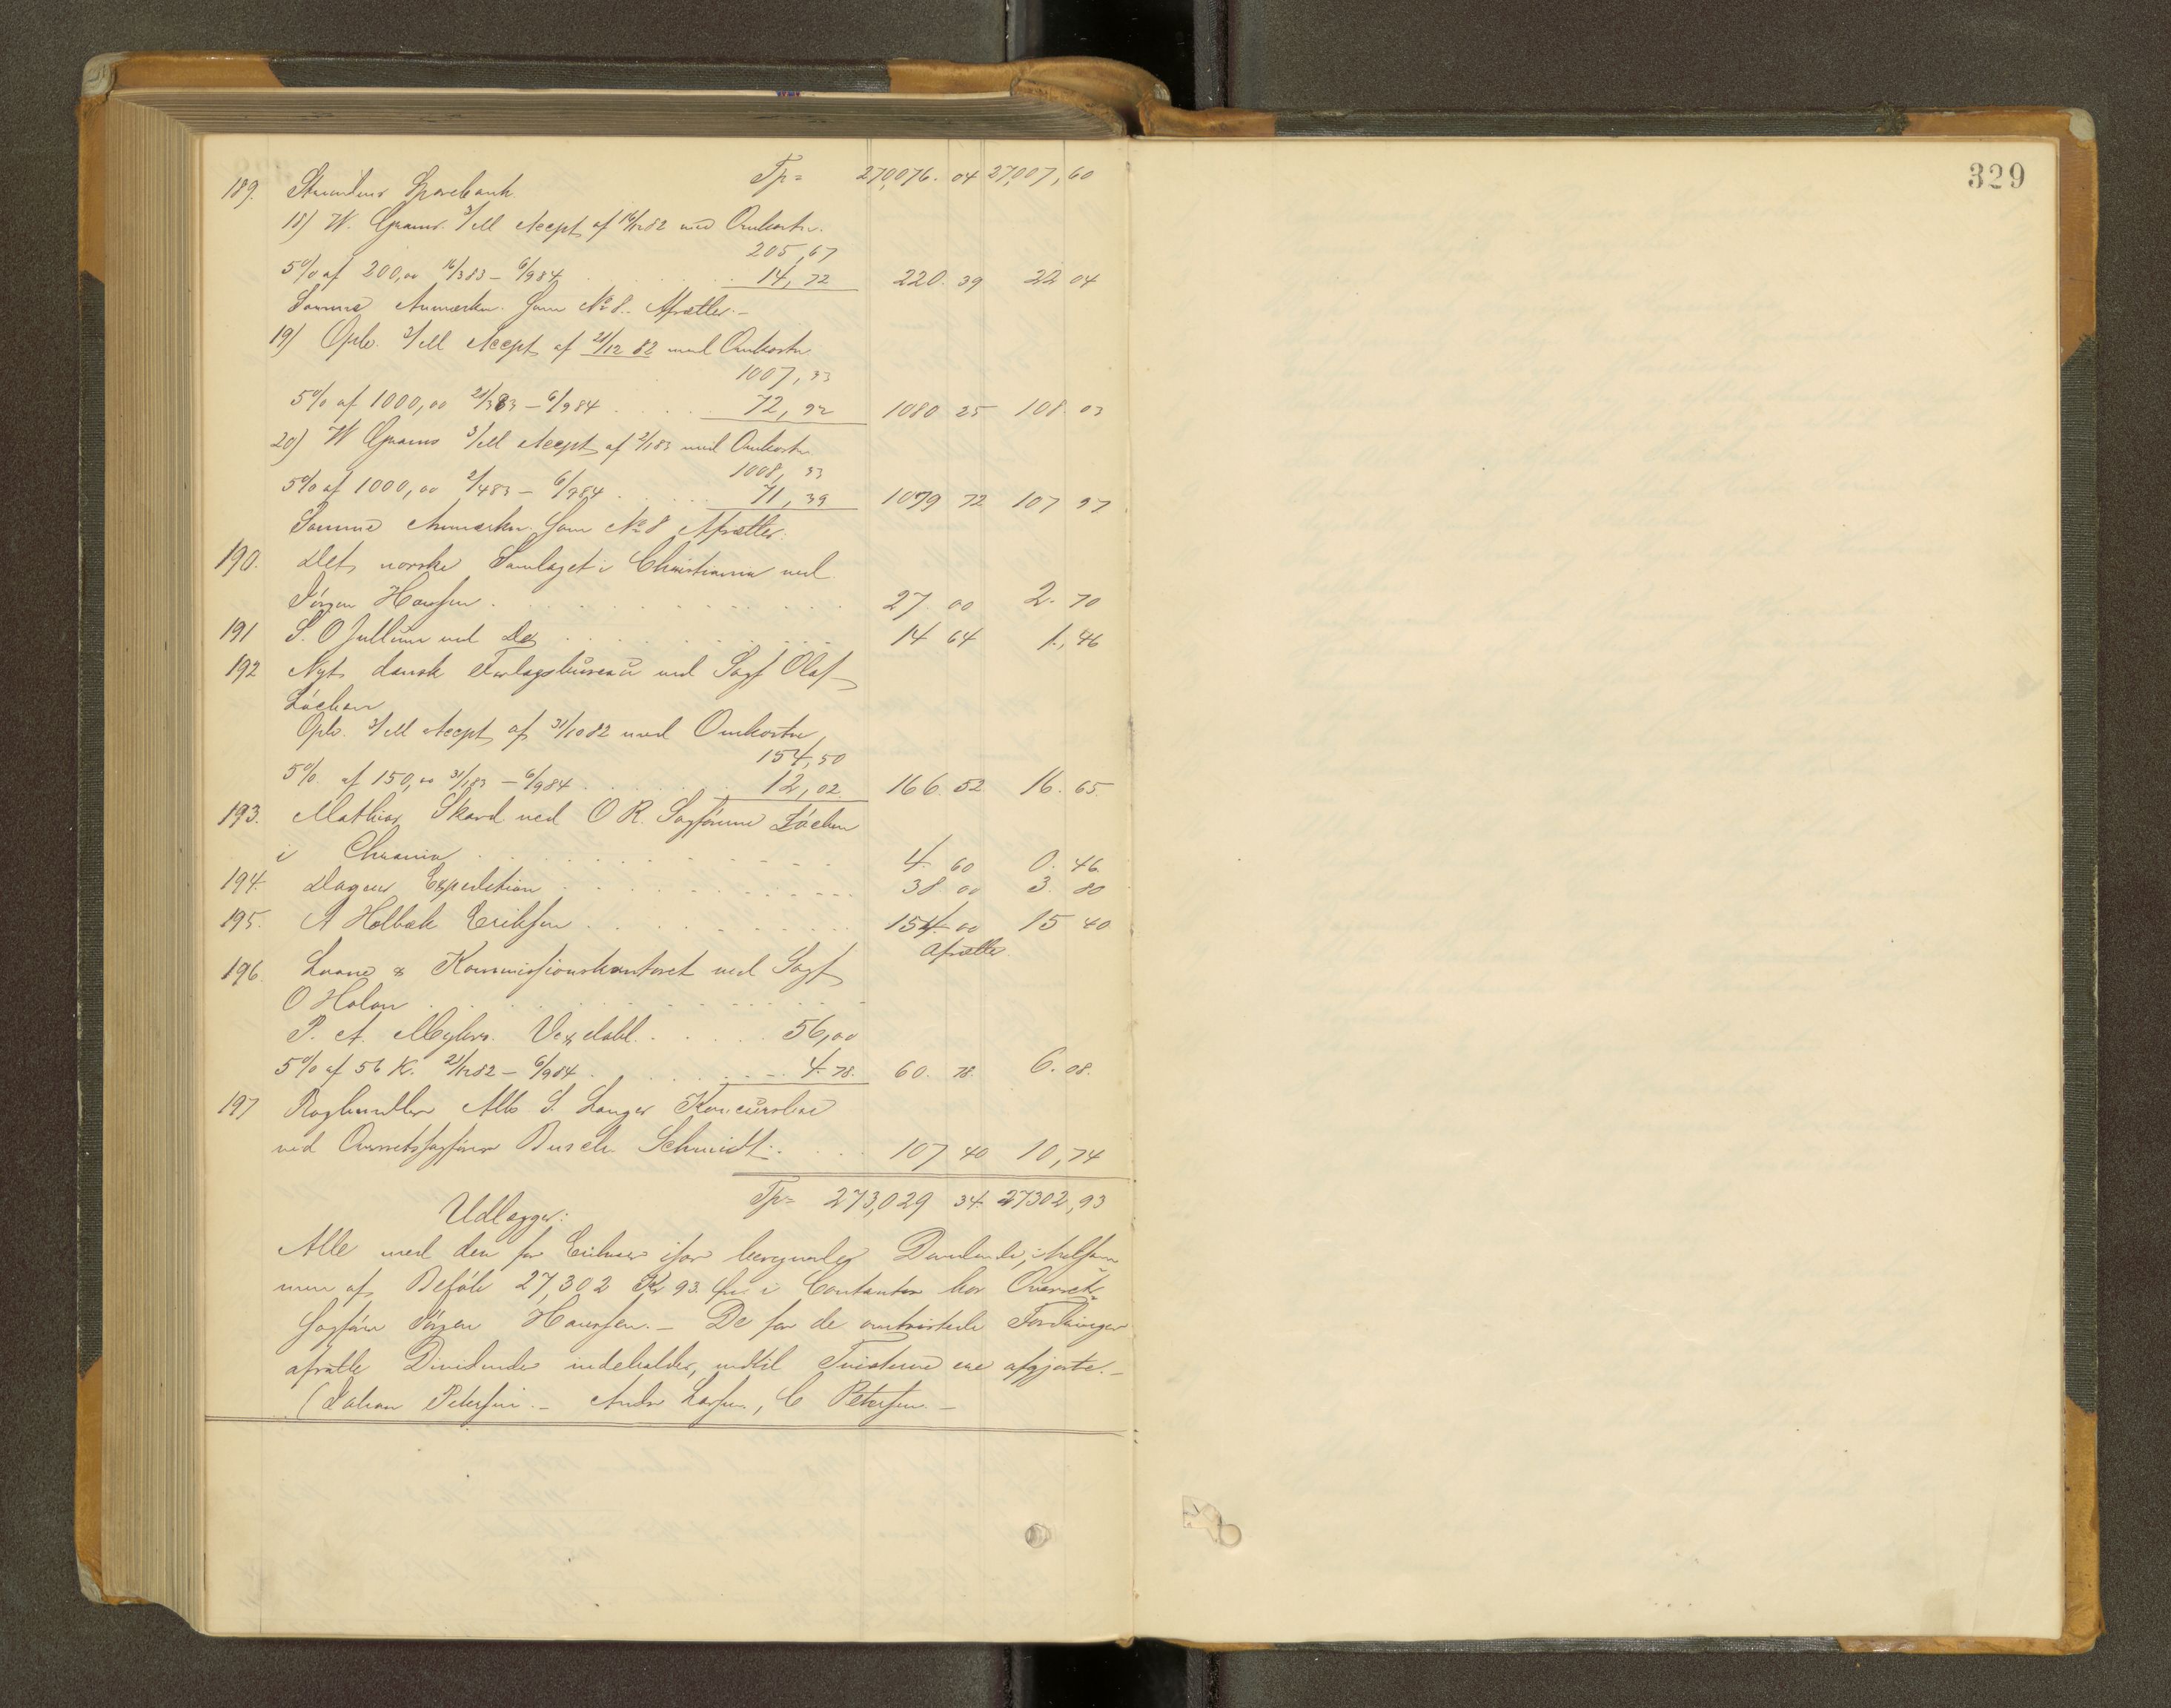 329
Tp= 270,076. 04 27,007, 60
189. Sparebank
18) W. Grams. 3/M Accept af 16/12 82 med Omkostn.
205,67
5% af 200,00 16/3 83 – 6/9 84 . . . 14,72 220. 39 22 04
Samme Anmærkn. som No 8. Afsættes. –
19) Oplv. 3/M Accept af 21/12 82 med Omkostn
1007, 33
5% af 1000,00 21/3 83 – 6/9 84 . . . . 72, 92 1080 25 108. 03
20) W Grams 3/M Accept af 2/1 83 med Omkostn
1008, 33
5% af 1000,00 2/4 83 – 6/9 84 . . . . 71, 39 1079 72 107 97
Samme Anmærkn. som No 8 Afsættes.
190. Det norske Samlaget i Christiania ved
Jörgen Hansen . . . . 27. 00 2. 70
191 S. O Jullum ved Do . . . . 14 64 1., 46
192 Nyt dansk Forlagsbureau ved Sagf Olaf
Löchen
Oplv. 3/M Accept af 31/10 82 med Omkostn
154,50
5% af 150,00 31/1 83 – 6/9 84 . . . . 12,02. 166. 52 16. 65.
193. Mathias Skard ved O R. Sagförer Löchen
i Chrania . . . . 4. 60 0. 46
194. Dagens Expedition . . . . 38 00 3. 80
195. A Holbæk Eriksen . . . . 154. 00 15 40
Afsættes.
196. Laane & Kommissionskontoret ved Sagf
O Holan . . . .
P. A. Vexelobl. . . . . 56,00
5% af 56 K. 21/12 82 – 6/9 84 . . . . 4. 78. 60. 78. 6. 08.
197 Boghandler Alb S. Langes Konkursbo
ved Overretssagförer Busch Schmidt. . . . 107 40 10,74
Tp= 273,029 34. 27302,93
Udlægges:
Alle med den for Enhver især beregnede Dividende, ialfam
men af Belöb 27,302 Kr 93. Öre i Contanter hos Overrets
sagförer Jörgen Hansen. – De for de omtvistede Fordringer
afsatte Dividender indeholdes, indtil Tvisterne ere afgjorte. –
(Johan Petersen. – Andr Larsen, C Petersen. –